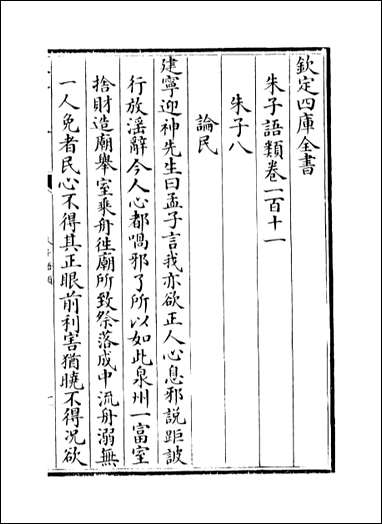 欽定四庫全書
朱子語類卷一百十一
朱子八
論民
建寧迎神先生曰孟子言我亦欲正人心息邪說距詖
行放淫辭今人心都喎邪了所以如此泉州一富室
捨財造廟舉室乘舟徃廟所致祭落成中流舟溺無
一人免者民心不得其正眼前利害猶曉不得況欲